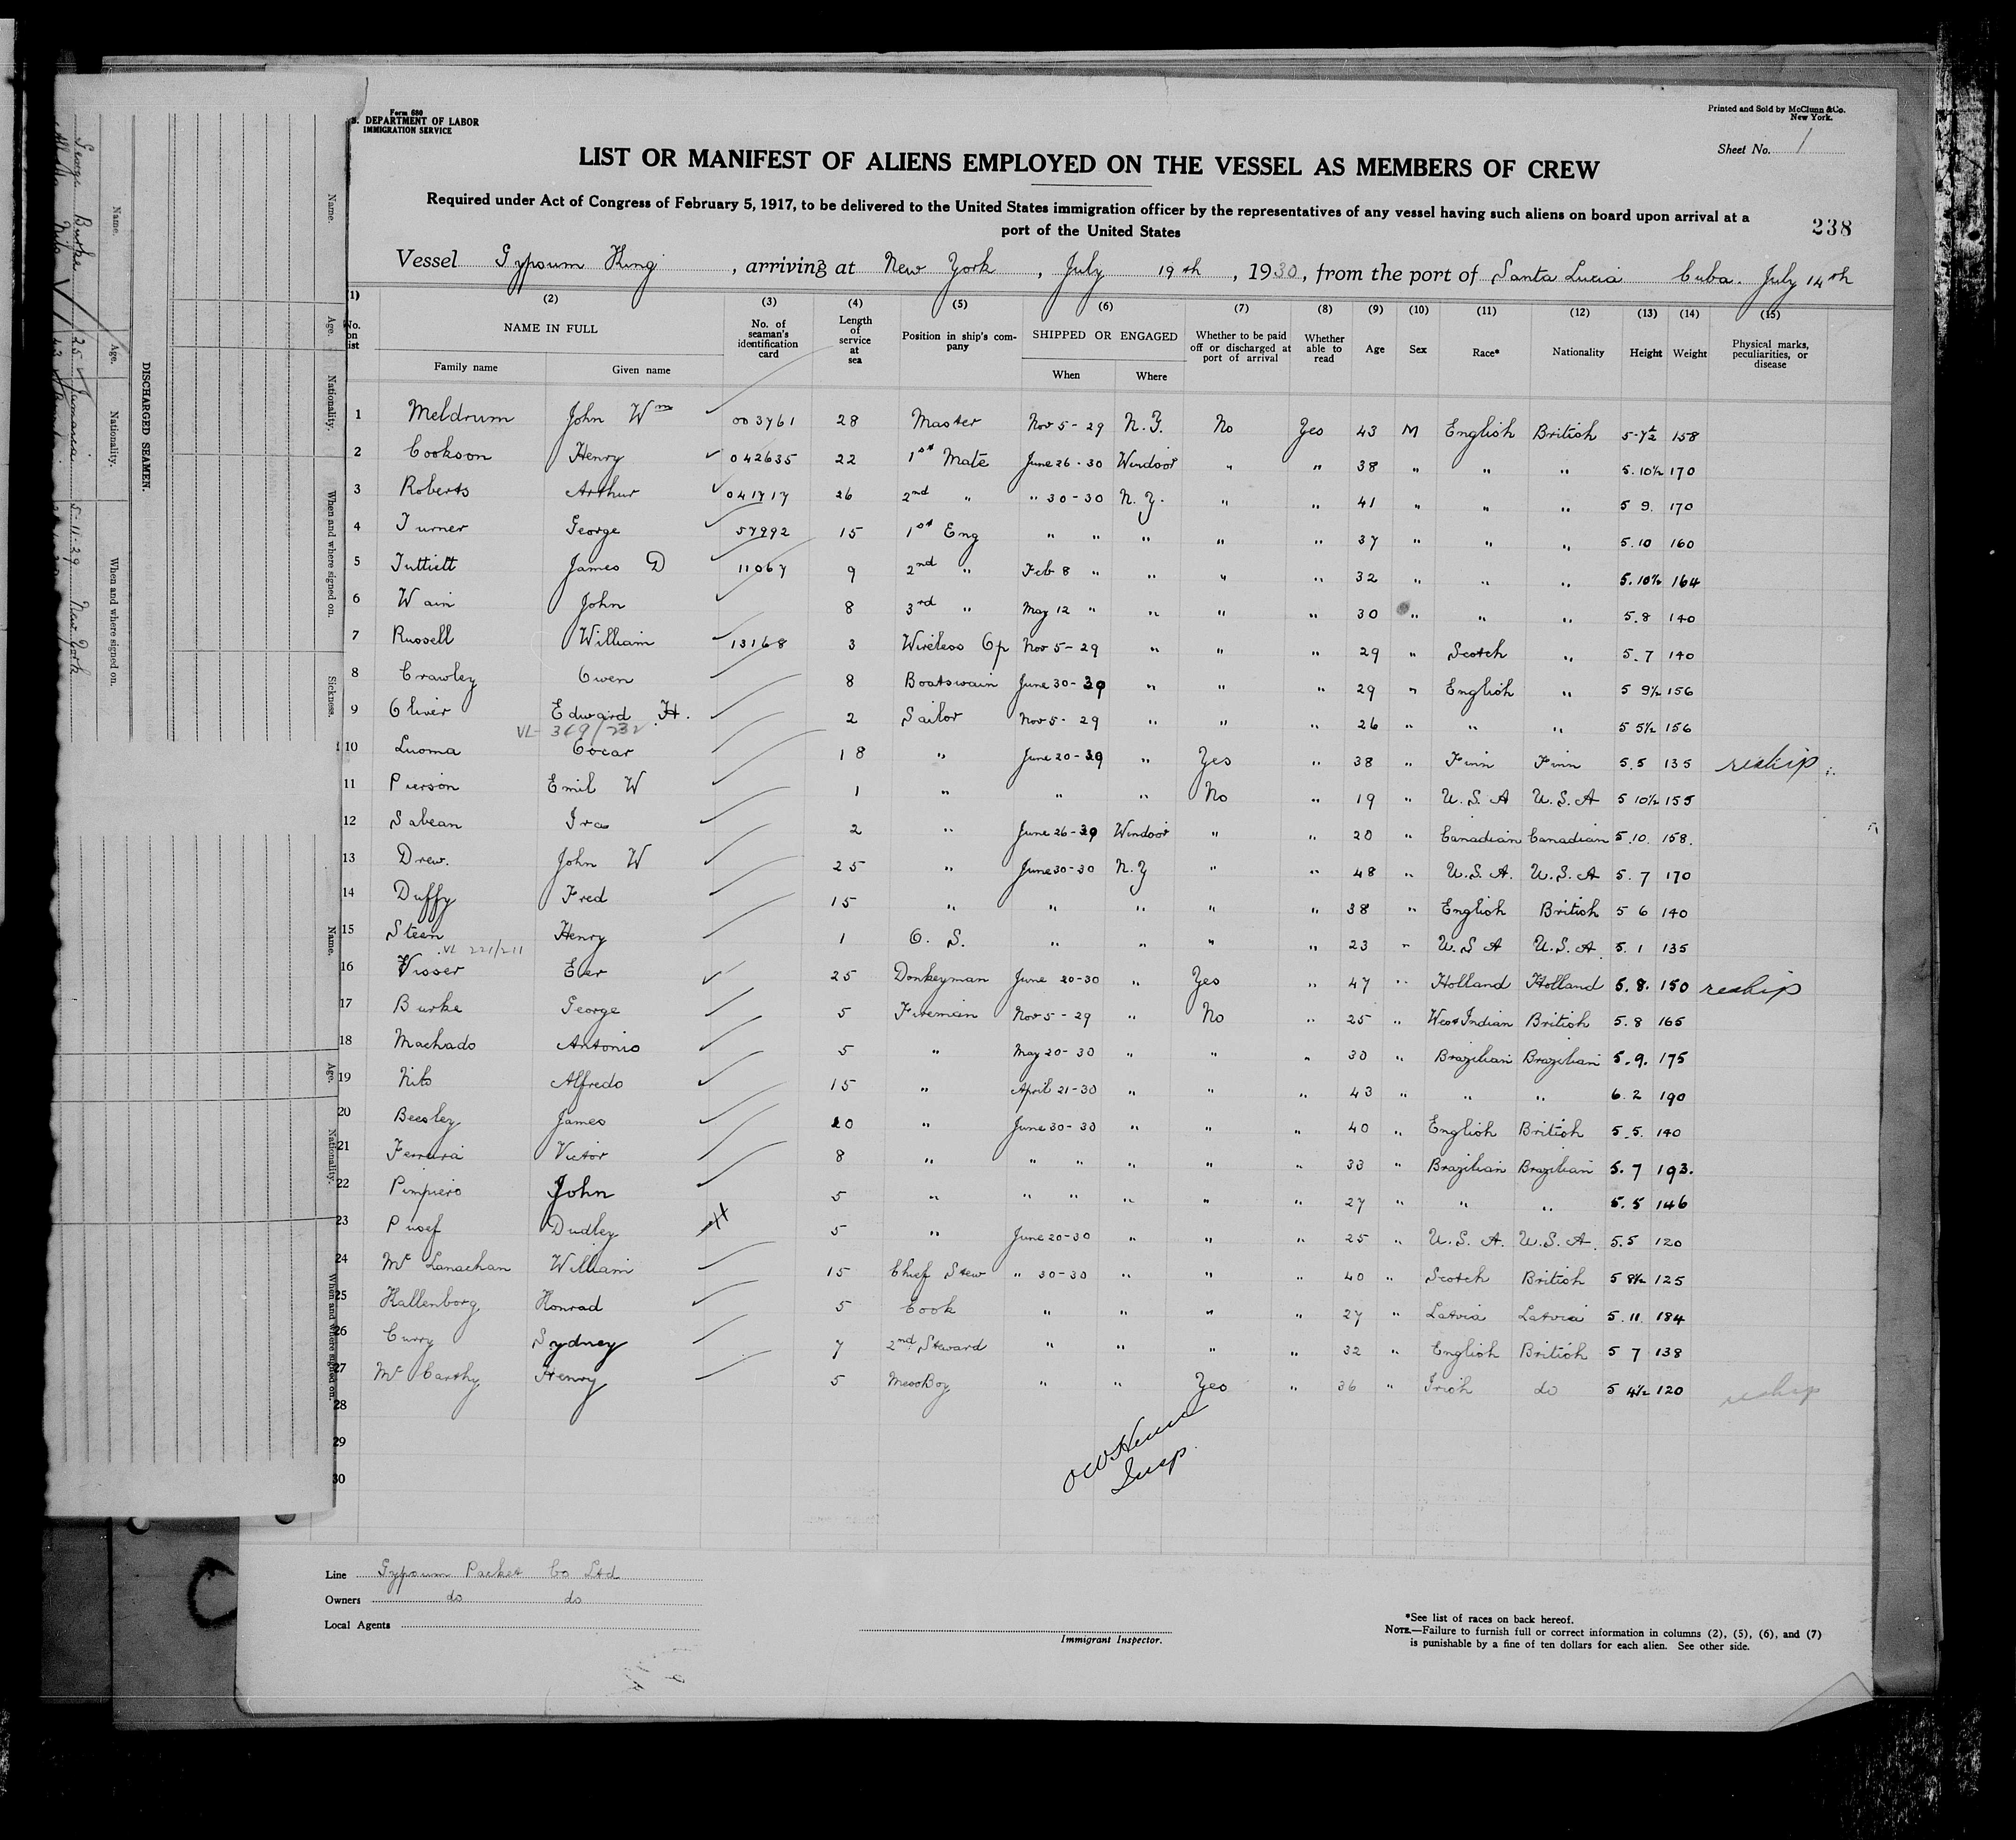 Form 680
S. DEPARTMENT OF LABOR
IMMIGRATION SERVICE
Printed and Sold by McClunn & Co.
New York.
Sheet No. 1
LIST OR MANIFEST OF ALIENS EMPLOYED ON THE VESSEL AS MEMBERS OF CREW
Required under Act of Congress of February 5, 1917, to be delivered to the United States immigration officer by the representatives of any vessel having such aliens on board upon arrival at a
port of the United States
238
Vessel Gypsum King, arriving at New York, July 19th, 1930, from the port of Santa Lucia Cuba. July 14th
(1) (2) (3) (4) (5) (6) (7) (8) (9) (10) (11) (12) (13) (14) (15)
No. on list NAME IN FULL Family name Given name No. of seaman's identification card Length of service at sea Position in ship's company SHIPPED OR ENGAGED When Where Whether to be paid off or discharged at port of arrival Whether able to read Age Sex Race* Nationality Height Weight Physical marks, peculiarities, or disease
1 Meldrum John Wm 003761 28 Master Nov 5-29 N.Y. No Yes 43 M English British 5-7½ 158
2 Cookson Henry 042635 22 1st Mate June 26-30 Windsor " " 38 " " " 5.10½ 170
3 Roberts Arthur 041717 26 2nd " " 30-30 N.Y. " " 41 " " " 5 9. 170
4 Turner George 57992 15 1st Eng " " " " " 37 " " " 5.10 160
5 Tuttiett James D 11067 9 2nd " Feb 8 " " " " 32 " " " 5.10½ 164
6 Wain John 8 3rd " May 12 " " " " 30 " " " 5.8 140
7 Russell William 13168 3 Wireless Op Nov 5-29 " " " 29 " Scotch " 5.7 140
8 Crawley Owen 8 Boatswain June 30-30 " " " 29 " English " 5 9½ 156
9 Oliver Edward H. 2 Sailor Nov 5-29 " " " 26 " " " 5 5½ 156
VL- 369/232
10 Luoma Oscar 18 " June 20-30 " Yes " 38 " Finn Finn 5.5 135 reship
11 Pierson Emil W 1 " " " No " 19 " U.S.A U.S.A 5 10½ 155
12 Sabean Ira 2 " June 26-30 Windsor " " 20 " Canadian Canadian 5.10. 158.
13 Drew. John W 25 " June 30-30 N.Y " " 48 " U.S.A. U.S.A 5.7 170
14 Duffy Fred 15 " " " " " 38 " English British 5 6 140
15 Steen Henry 1 O.S. " " " " 23 " U.S.A U.S.A. 5.1 135
VL 221/211
16 Visser Eer 25 Donkeyman June 20-30 " Yes " 47 " Holland Holland 5.8. 150 reship
17 Burke George 5 Fireman Nov 5-29 " No " 25 " West Indian British 5.8 165
18 Machado Antonio 5 " May 20-30 " " " 30 " Brazilian Brazilian 5.9. 175
19 Nito Alfredo 15 " April 21-30 " " " 43 " " " 6.2 190
20 Beesley James 20 " June 30-30 " " " 40 " English British 5.5. 140
21 Ferreira Victor 8 " " " " " " 33 " Brazilian Brazilian 5.7 193.
22 Pinpiero John 5 " " " " " " 27 " " " 5.5 146
23 Dudley 5 " June 20-30 " " " 25 " U.S.A. U.S.A. 5.5 120
24 Mc Lanachan William 15 Chief Stew " 30-30 " " " 40 " Scotch British 5 8½ 125
25 Kallenborg Konrad 5 Cook " " " " 27 " Latvia Latvia 5.11. 184
26 Curry Sydney 7 2nd Steward " " " " 32 " English British 5 7 138
27 Mc Carthy Henry 5 MessBoy " " Yes " 36 " Irish do 5 4½ 120 reship
28
29
30
Insp.
Line Gypsum Packet Co Ltd
Owners do do
Local Agents
Immigrant Inspector.
*See list of races on back hereof.
NOTE.—Failure to furnish full or correct information in columns (2), (5), (6), and (7)
is punishable by a fine of ten dollars for each alien. See other side.
DISCHARGED SEAMEN.
Name. Age. Nationality. When and where signed on.
George Burke 25 Jamaican 5-11-29 New York
Nito 43
Name. Age. Nationality. When and where signed on. Sickness.
Name. Age. Nationality. When and where signed on.